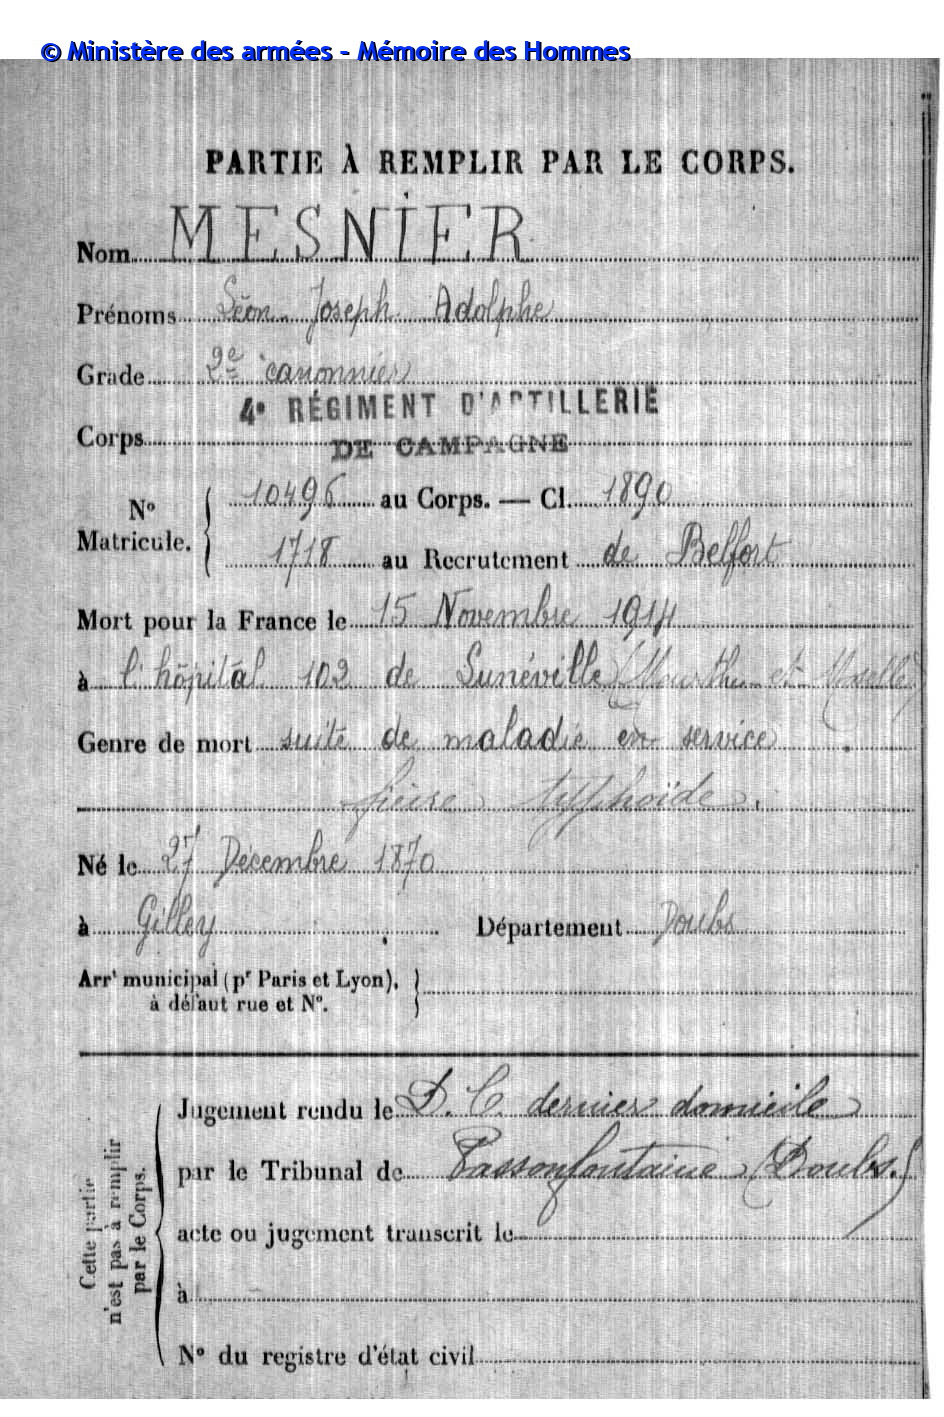 © Ministère des armées - Mémoire des Hommes
PARTIE À REMPLIR PAR LE CORPS.
Nom MESNIER
Prénoms Léon Joseph Adolphe
Grade 2e canonnier
4e RÉGIMENT D'ARTILLERIE
Corps DE CAMPAGNE
No Matricule. 10496 au Corps. — Cl. 1890
1718 au Recrutement de Belfort
Mort pour la France le 15 Novembre 1914
à l'hôpital 102 de Lunéville (Meurthe et Moselle)
Genre de mort suite de maladie en service
fièvre typhoïde.
Né le 27 Décembre 1870
à Gilley Département Doubs
Arrt municipal (pr Paris et Lyon),
à défaut rue et No.
Cette partie
n'est pas à remplir
par le Corps.
Jugement rendu le D. C. dernier domicile
par le Tribunal de Passonfontaine (Doubs.)
acte ou jugement transcrit le
à
No du registre d'état civil